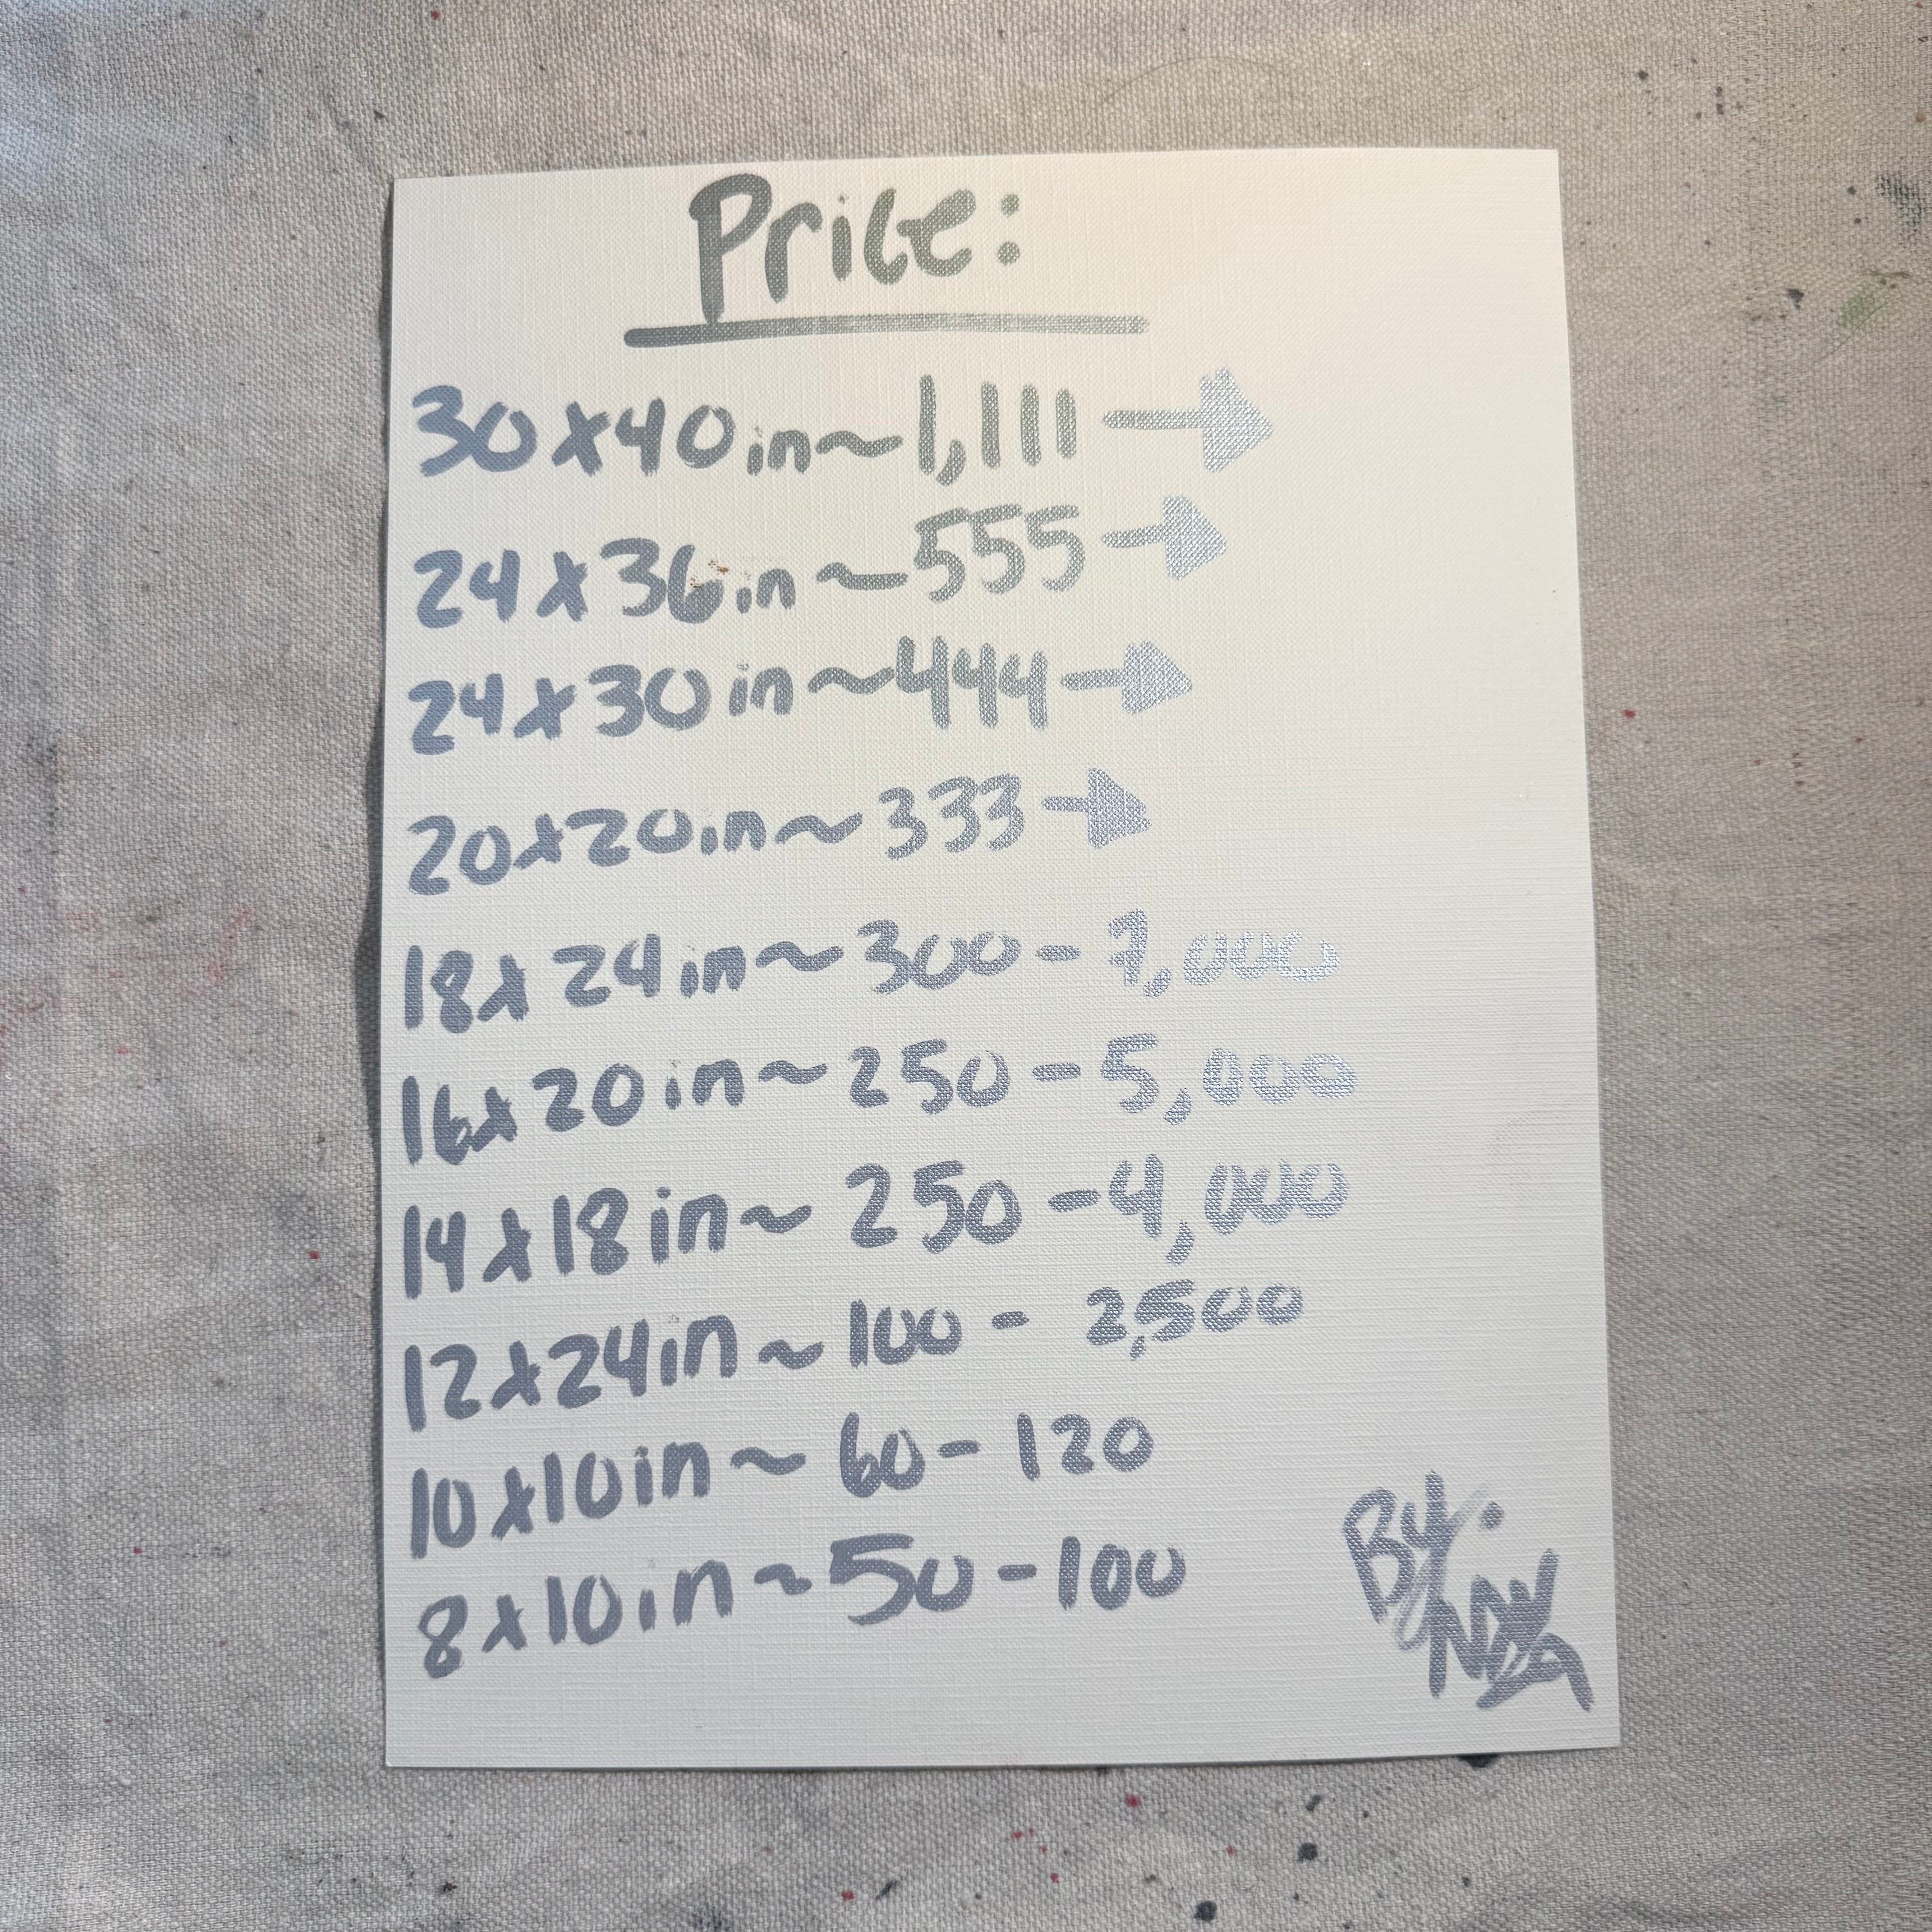 Price:
30x40in~1,111→
24x36in~555→
24x30in~444→
20x20in~333→
18x24in~300-7,000
16x20in~250-5,000
14x18in~250-4,000
12x24in~100-2,500
10x10in~60-120
8x10in~50-100
By: